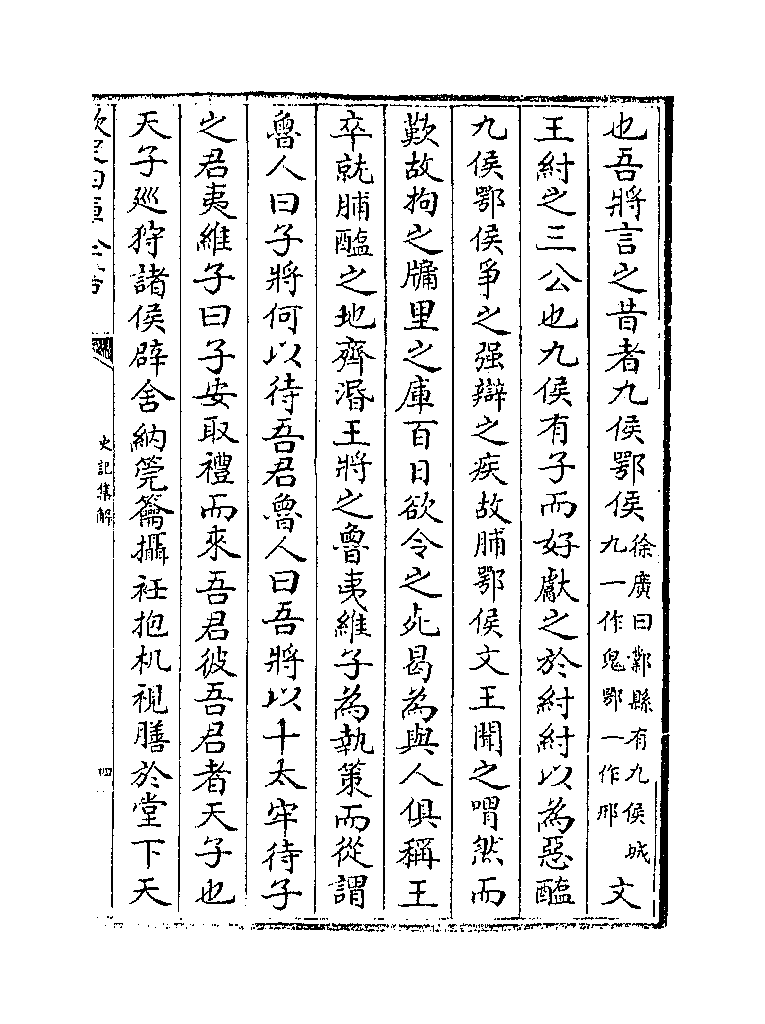 也吾將言之昔者九侯鄂侯徐廣曰鄴縣有九侯城九一作鬼鄂一作邢文
王紂之三公也九侯有子而好獻之於紂紂以為惡醢
九侯鄂侯爭之强辯之疾故脯鄂侯文王聞之喟然而
歎故拘之牖里之庫百日欲令之死曷為與人俱稱王
卒就脯醢之地齊湣王將之魯夷維子為執策而從謂
魯人曰子將何以待吾君魯人曰吾將以十太牢待子
之君夷維子曰子安取禮而來吾君彼吾君者天子也
天子廵狩諸侯辟舍納筦籥攝衽抱机視膳於堂下天
欽定四庫全書
史記集解
四